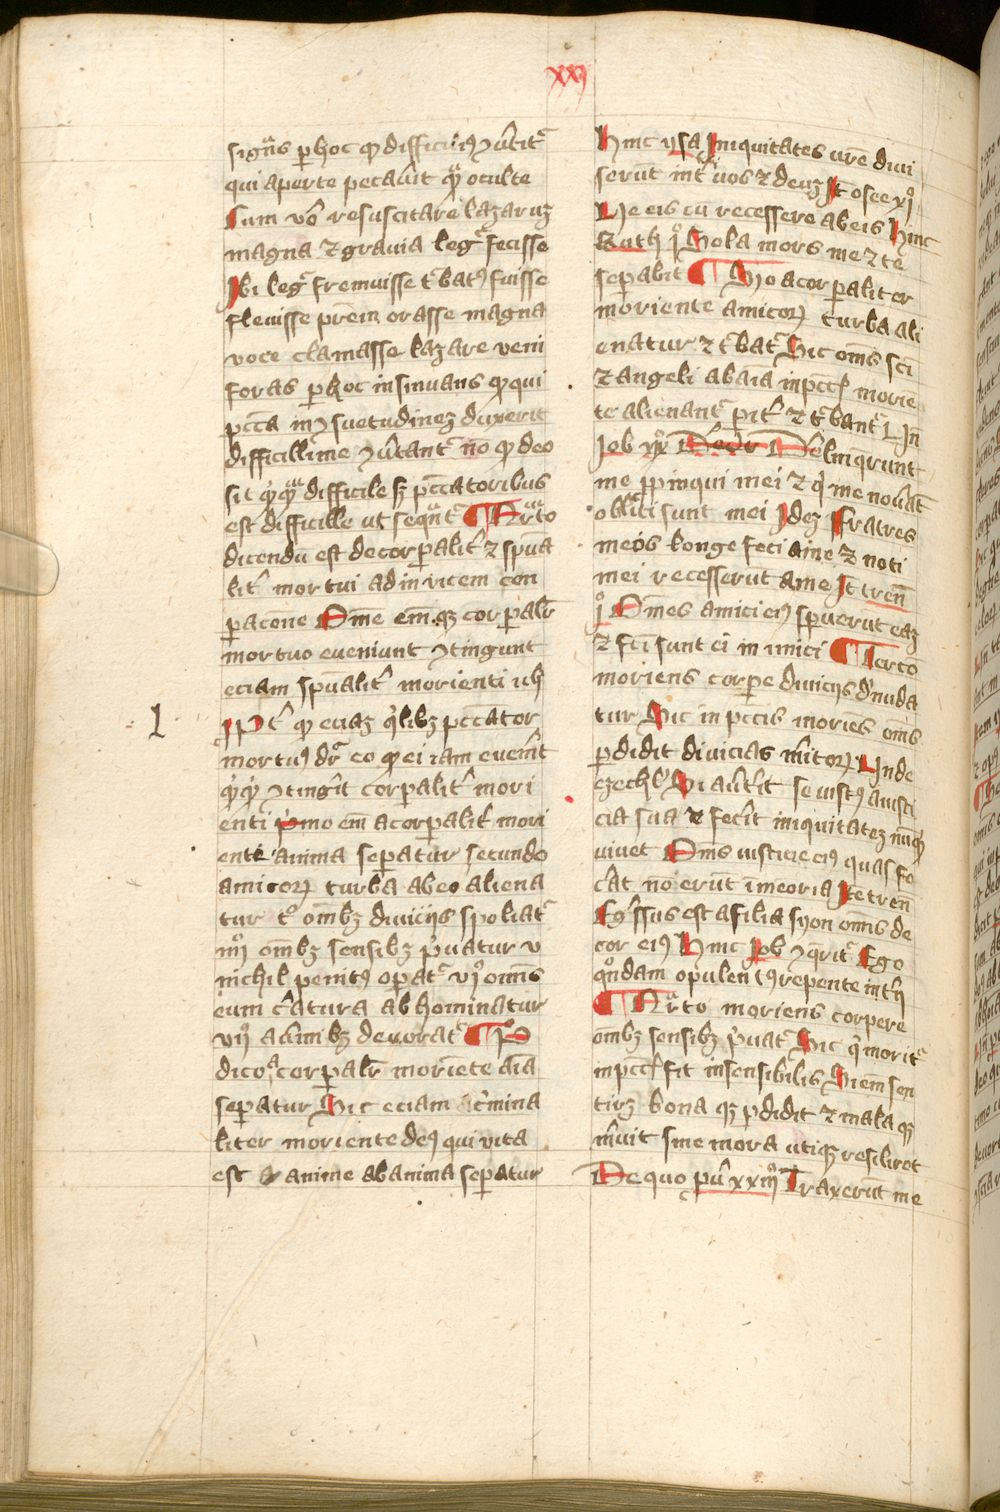 xxj
signans per hoc quod difficilius convertitur
qui aperte peccavit quam oculte
Cum vero resuscitare lazarum
magna et gravia legitur fecisse
Ibi legitur fremuisse turbatus fuisse
flevisse patrem orasse magna
voce clamasse lazare veni
foras per hoc insinuans quod qui
peccata in consuetudinem duxerit
difficillime convertantur non quod deo
sit quicquam difficile sed peccatoribus
est difficille ut sequentur Quarto
dicendum est de corporaliter et spiritua
liter mortui ad invicem con
paracione Omne enim quod corporaliter
mortuo eveniunt contingunt
eciam spiritualiter morienti
1
Patet quod eciam quilibet peccator
mortuus dicitur eo quod ei iam evenit
quicquid contingit corporaliter mori
enti primo enim a corporaliter mori
ente anima separatur secundo
amicorum turba ab eo aliena
tur tercio omnibus diviciis spoliatur
iiij omnibus sensibus privatur v
nichil penitus operatur vi omnis
eum creatura abhominatur
vij a vermibus devoratur Primo
dico a corporaliter moriente anima
separatur Sic eciam criminaliter
liter moriente deus qui vita
est anime ab anima separatur
Hinc ysa Iniquitates vestre divi
serunt inter vos et deum Item osee xi
Ve eis cum recessero ab eis Hinc
Ruth i Sola mors me et te
separabit Secundo a corporaliter
moriente amicorum turba ali
enatur et turbatur Sic omnes sancti
et angeli ab anima in peccatis morien
te alienantur pariter et turbantur Unde
Job xix Dereliquerunt
me propinqui mei et qui me noverant
obliti sunt mei Idem Fratres
meos longe feci a me et noti
mei recesserunt a me Item tren
i Omnes amici eius spreverunt eam
et facti sunt ei inimici Tercio
moriens corpore diviciis denuda
tur Sic in peccatis moriens omnes
perdidit divicias meritorum Unde
ezechiel Si averterit se iustus a iusti
cia sua et fecerit iniquitatem numquid
vivet Omnes iusticie eius quas fe
cerat non erunt in memoria Item tren
Egressus est a filia syon omnis de
cor eius Hinc Job conqueritur Ego
quondam opulentus repente
Quarto moriens corpore
omnibus sensibus privatur Sic qui moritur
in peccatis fit insensibilis Si enim sen
tiret bona que perdidit et mala que
meruit sine mora utique resiliret
De quo prov xxiij Traxerunt me